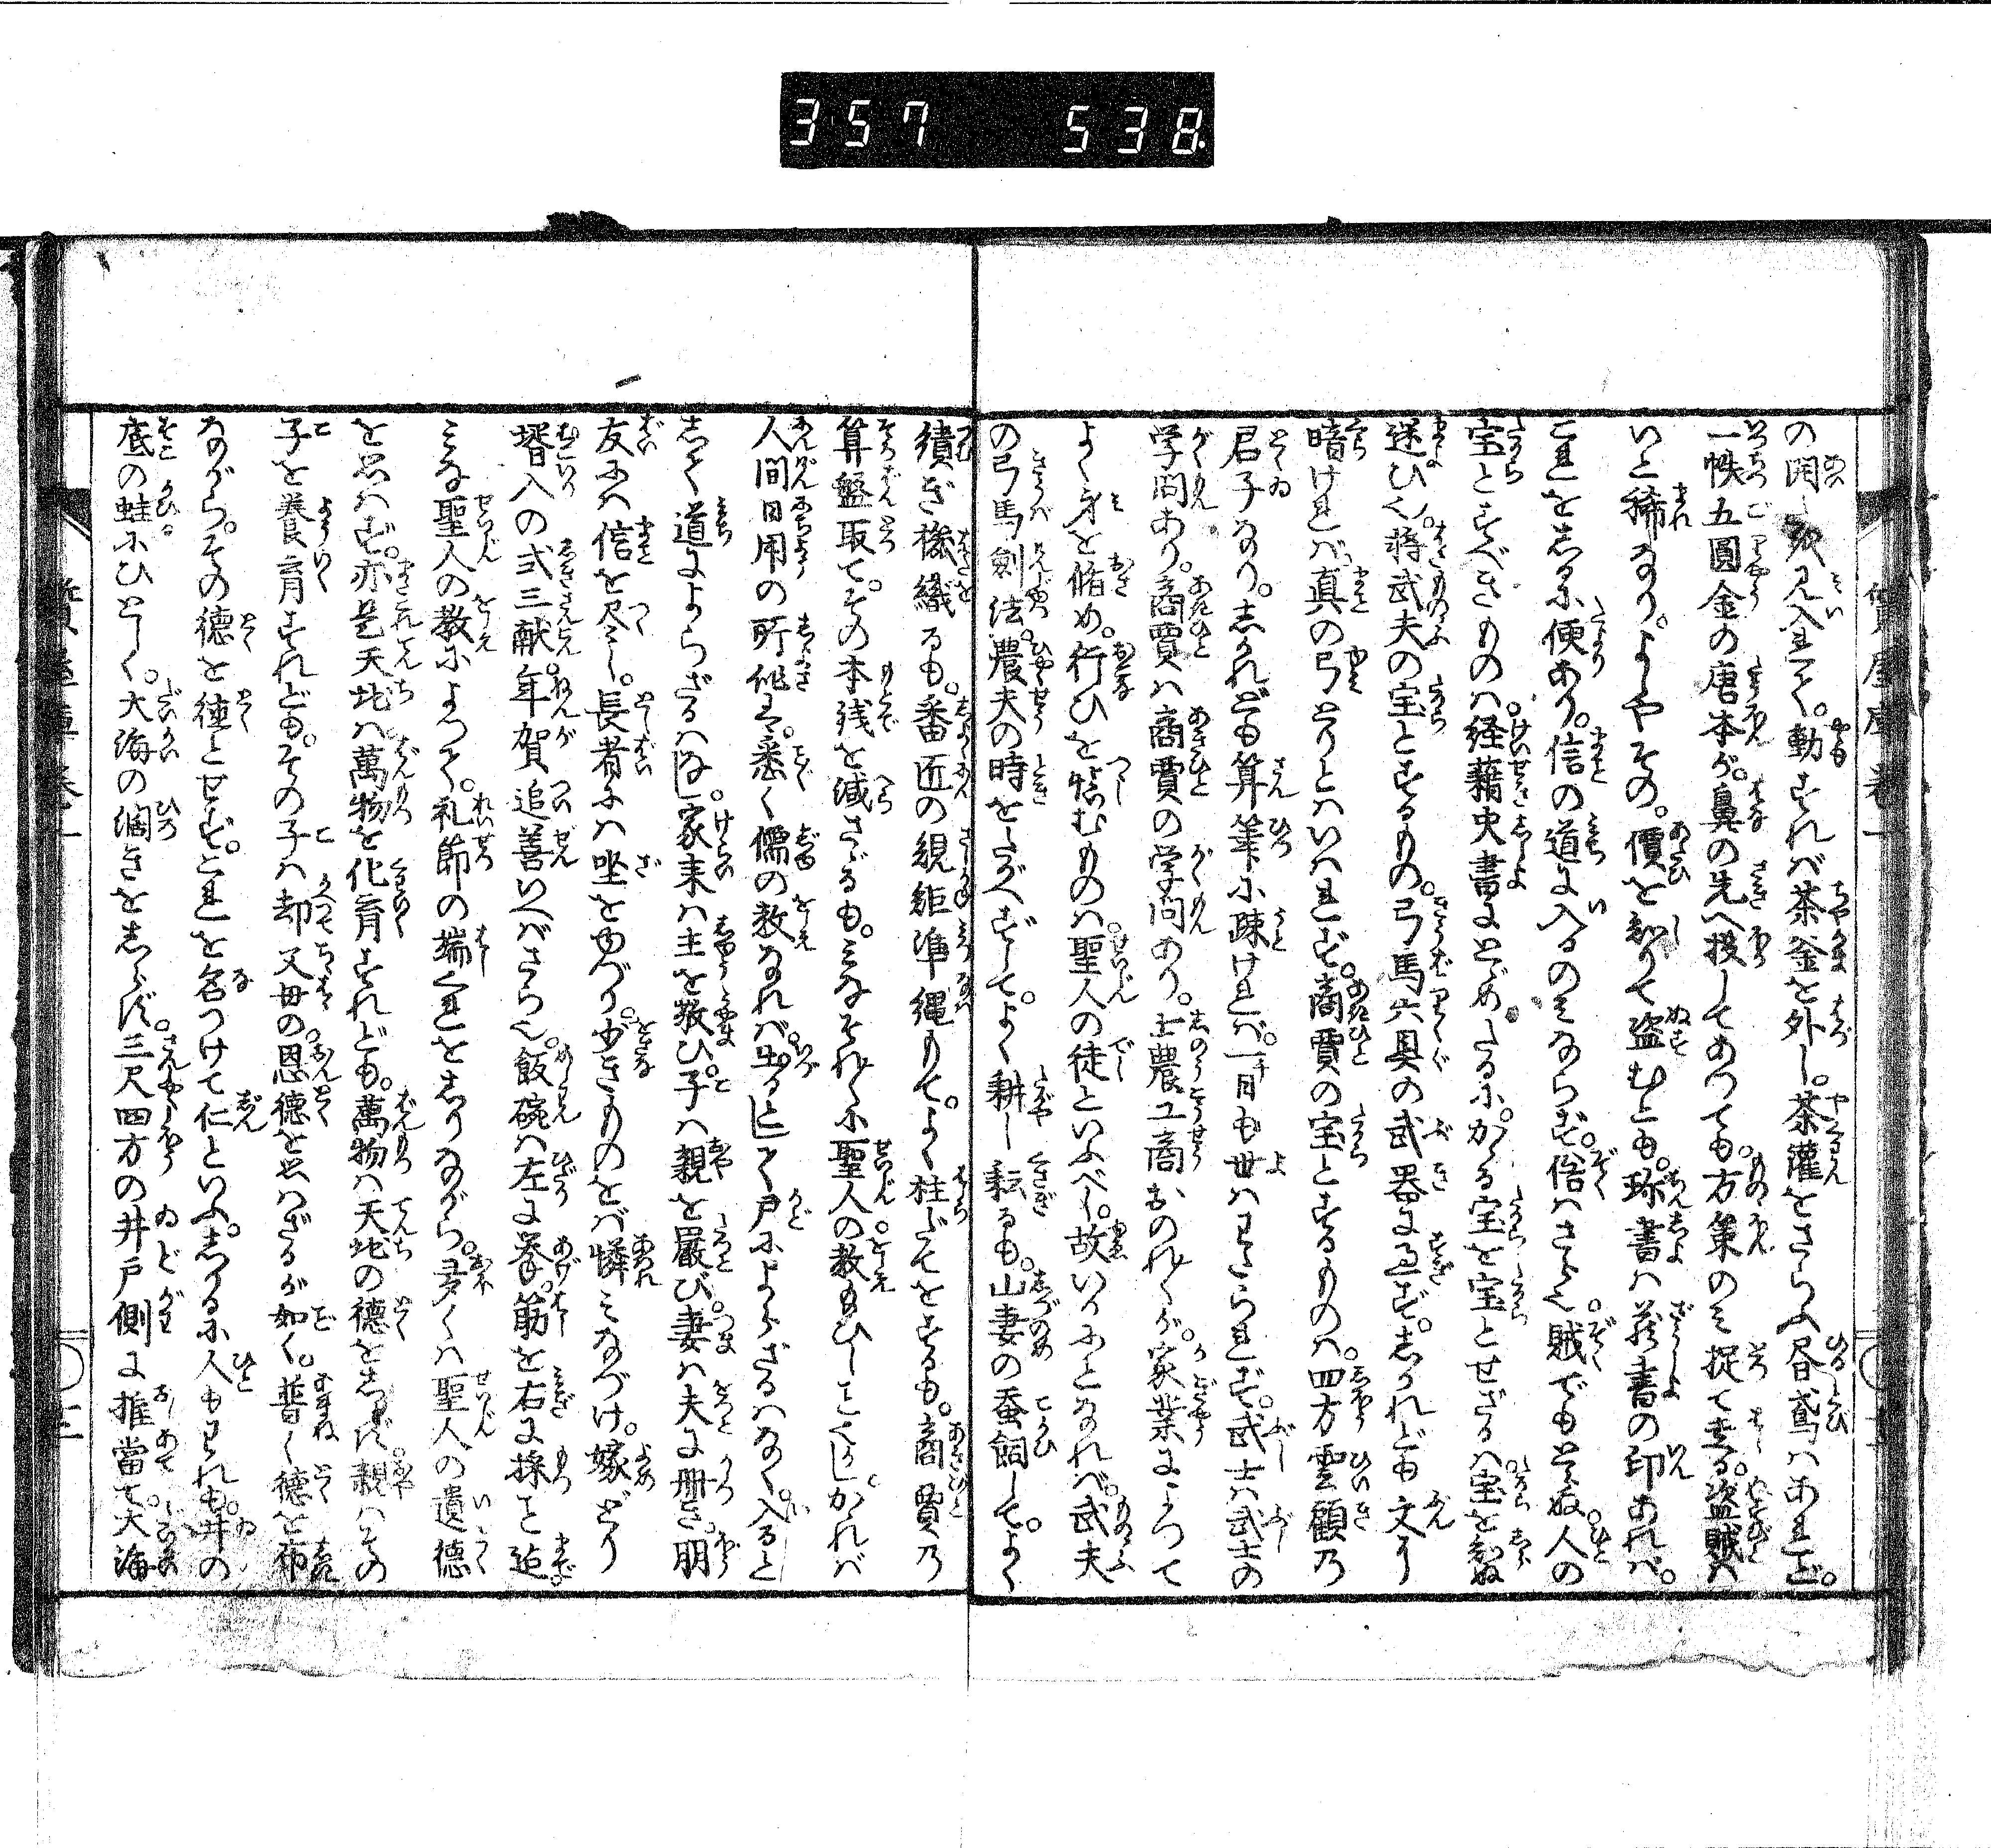 357 538
の閑しきに見入れて。動すれば茶釜を外し。茶灌をさらふ昼鳶はあれど。
一帙五圓金の唐本が。鼻の先へ投してあつても。方策のみ捉て去る。盗賊は
いと稀なり。よしやその。價を知りて盗むとも。珎書は蔵書の印あれば。
これをしるに便あり。信の道に入るのみならず。俗はさら也。賊でもとらぬ。人の
宝とすべきものは。経藉史書にとゞめたるに。かゝる宝を宝とせざるは。宝を知ぬ
迷ひ也。将武夫の宝とするもの。弓馬六具の武器に過ず。しかれども文に
暗ければ。真の弓とりとはいはれず。商賈の宝とするものは。四方雲顧の
君子なり。しかれども算筆に疎ければ。一日も世はわたられず。武士は武士の
学問あり。商賈は商賈の学問あり。士農工商おのれ〳〵が。家業によつて
よく身を脩め。行ひを慎むものは。聖人の徒といふべし。故いかにとなれば。武夫
の弓馬劍法。農夫の時をたがへずして。よく耕し耘るも。山妻の蚕飼して。よく
績ぎ機織るも。番匠の規矩準縄もて。よく柱だてをするも。商賈の
算盤取て。その本残を減さゞるも。みなそれ〳〵に聖人の教給ひしことくしかれば
人間日用の所作は。悉く儒の教なれば。出るとして戸によらざるはなく。入ると
して道によらざるはなし。家来は主を敬ひ。子は親を嚴び。妻は夫に冊き。朋
友には信を尽し。長者には坐をゆづり。少きものをば憐みなづけ。嫁どり
壻入の式三献。年賀追善いへばさら也。飯碗は左に拳。筋を右に採まで
みな聖人の教によつて。礼節の端くれをしりながら。多くは聖人の遺徳
を思はず。亦是天地は萬物を化育すれども。萬物は天地の徳をしらず。親はその
子を養育すれども。その子は却父母の。恩徳を思はざるが如く。普く徳を布
ながら。その徳を徳とせず。これを名つけて仁といふ。しかるに人もわれも。井の
底の蛙にひとしく。大海の濶きをしらず。三尺四方の井戸側に推當て。大海